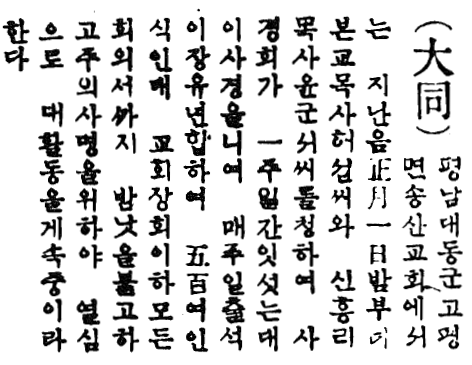 (大同)
평남대동군고평
면송산교회에서
는 지난음正月一日밤부터
본교목사허섭씨와 신흥리
목사윤군서씨를청하여 사
경회가 一주일간잇섯는대
이사경을니여 매주일출석
이장유년합하여 五百여인
식인대 교회장회이하모든
회의서ᄭᅡ지 밤낫을불고하
고주의사명을위하야 열심
으로 대활동을게속중이라
한다